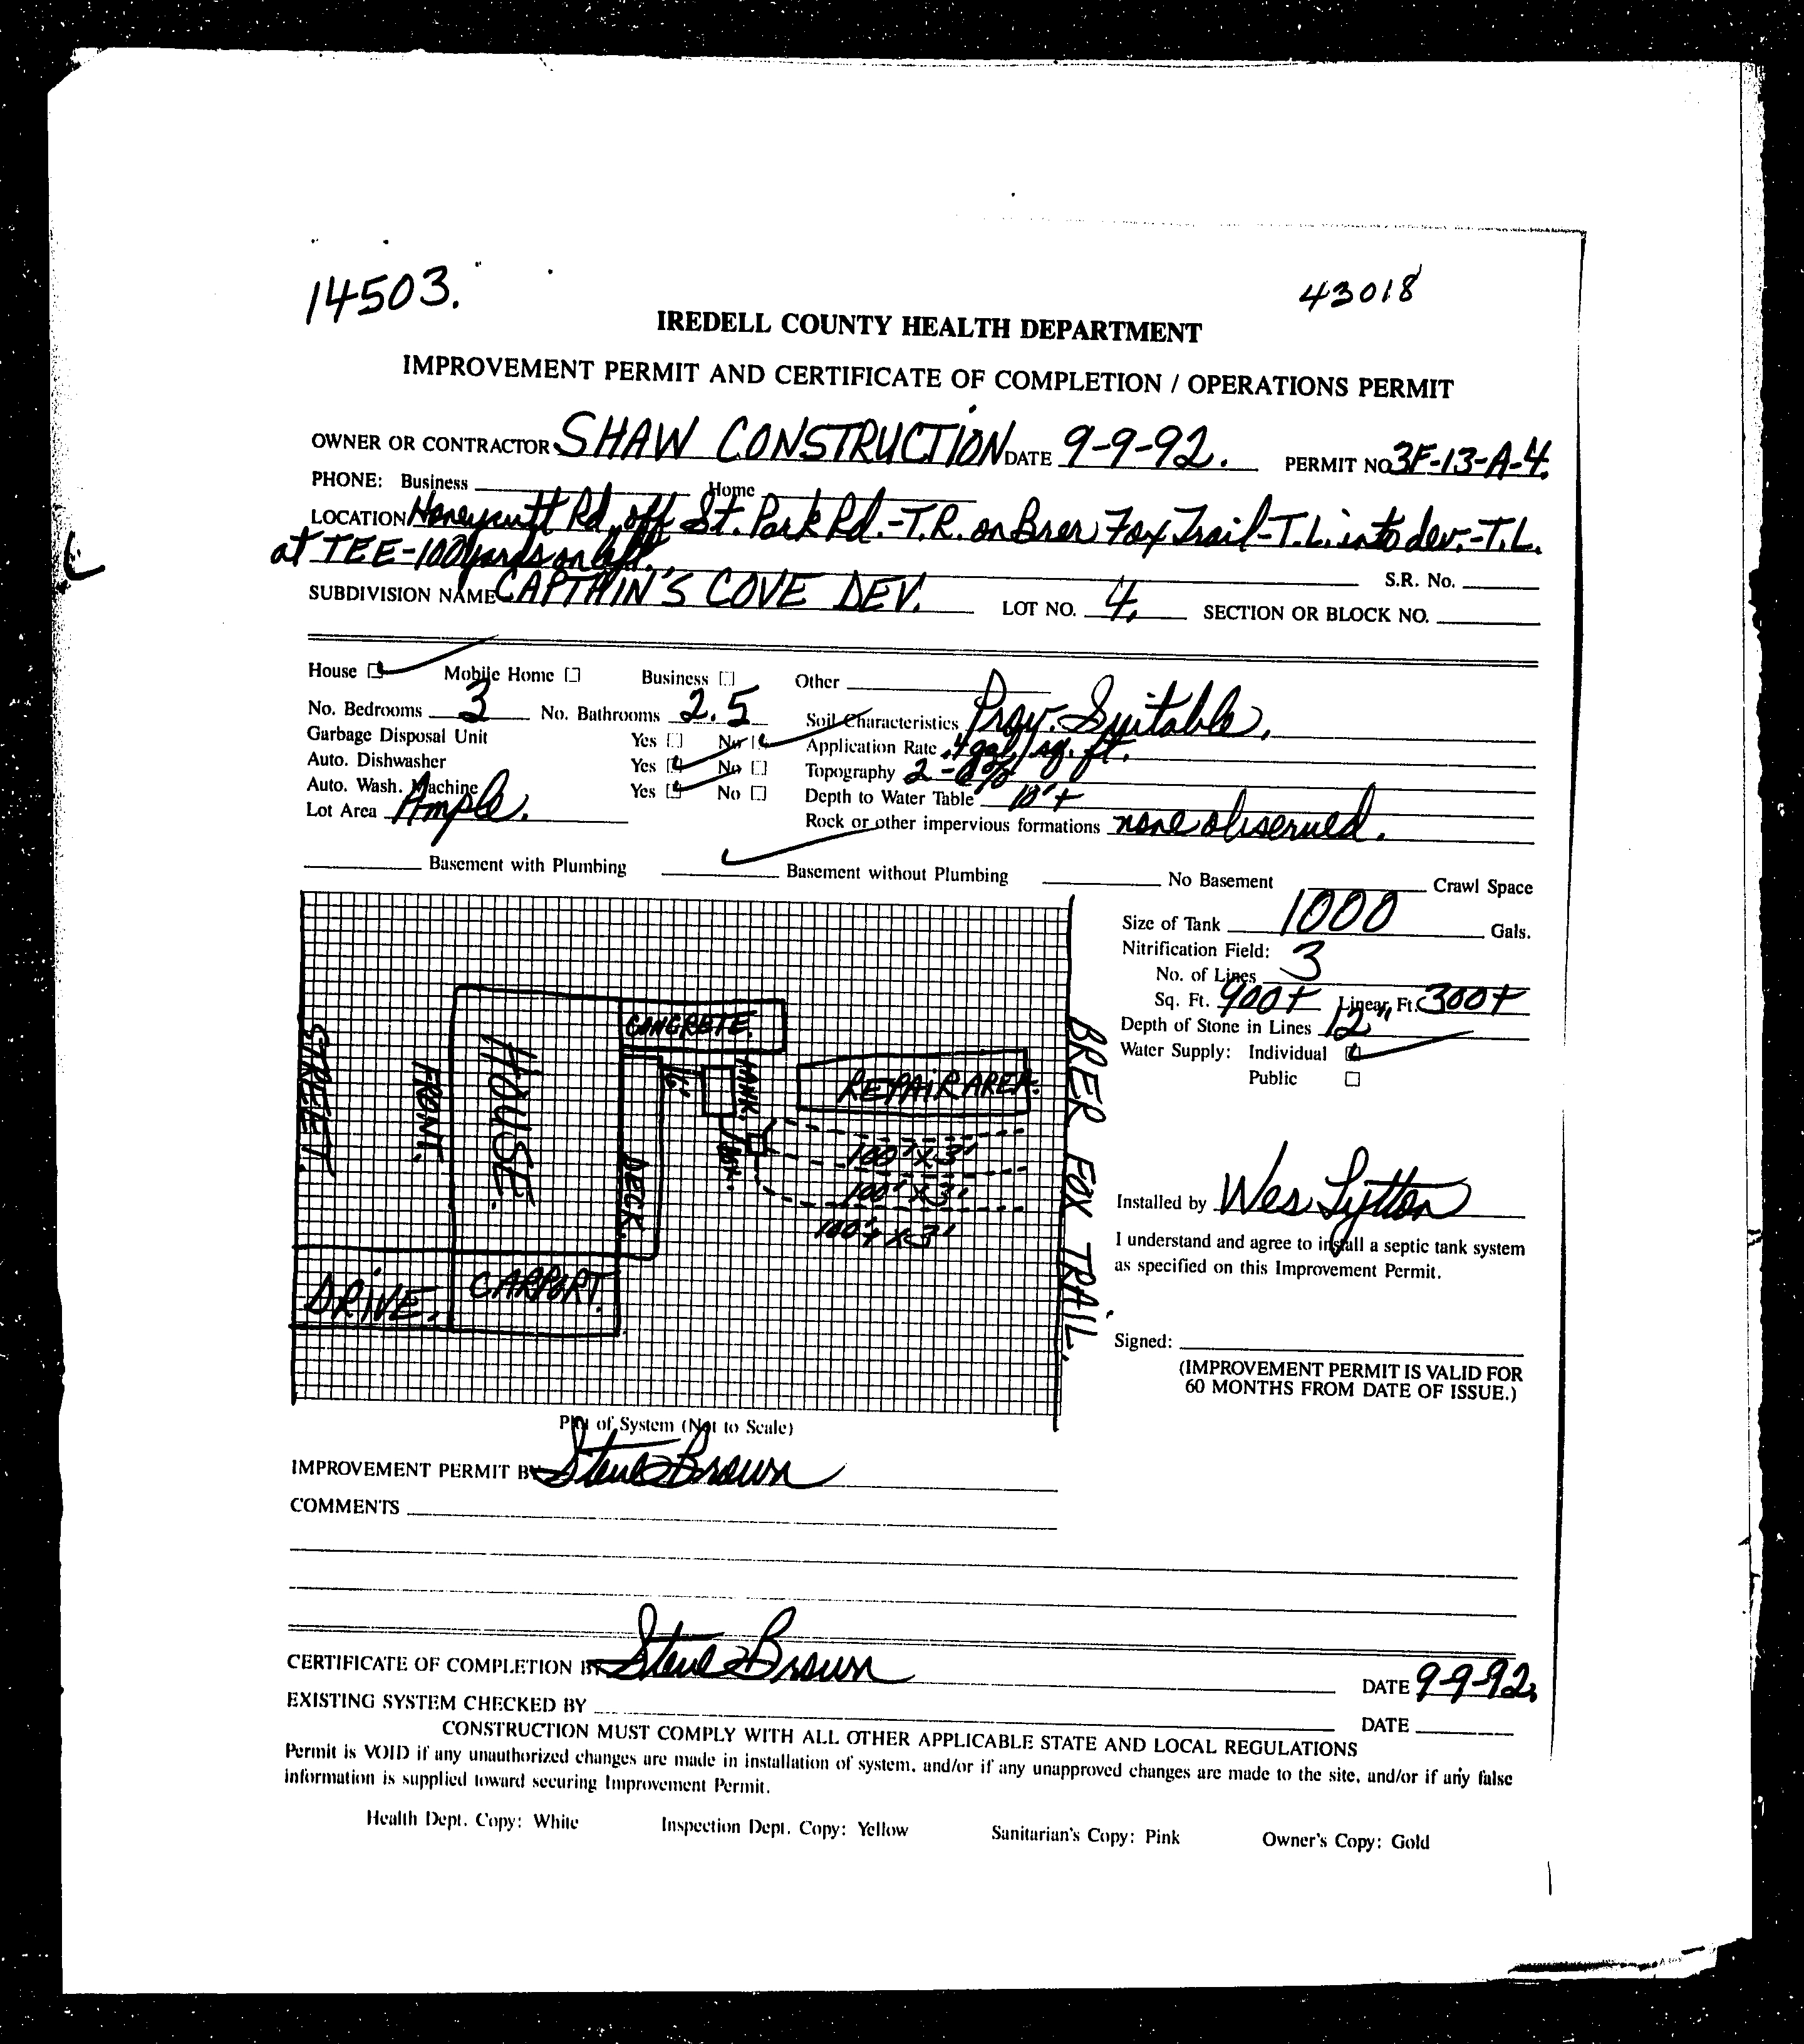 14503.
43018
IREDELL COUNTY HEALTH DEPARTMENT
IMPROVEMENT PERMIT AND CERTIFICATE OF COMPLETION / OPERATIONS PERMIT
OWNER OR CONTRACTOR SHAW CONSTRUCTION DATE 9-9-92. PERMIT NO 3F-13-A-4.
PHONE: Business Home
LOCATION Honeycutt Rd. off St. Park Rd.-T.R. on Brer Fox Trail-T.L. into dev.-T.L.
at TEE-100 yards on left.
S.R. No.
SUBDIVISION NAME CAPTAIN'S COVE DEV. LOT NO. 4. SECTION OR BLOCK NO.
House Mobile Home Business Other
No. Bedrooms 3 No. Bathrooms 2.5 Soil Characteristics Prov. Suitable.
Garbage Disposal Unit Yes No Application Rate .4 gal./sq. ft.
Auto. Dishwasher Yes No Topography 2-
Auto. Wash. Machine Yes No Depth to Water Table 10'+
Lot Area Ample. Rock or other impervious formations none observed.
Basement with Plumbing Basement without Plumbing No Basement Crawl Space
Size of Tank 1000 Gals.
Nitrification Field:
No. of Lines 3
Sq. Ft. 900+ Linear Ft. 300+
Depth of Stone in Lines 12"
Water Supply: Individual
Public
STREET.
FRONT.
HOUSE.
CONCRETE.
DECK.
16'
TANK.
BOX.
REPAIR AREA.
100' x 3'
100' x 3'
100'+ x 3'
CARPORT.
DRIVE.
BRER FOX TRAIL.
Installed by Wes Lytton
I understand and agree to install a septic tank system
as specified on this Improvement Permit.
Signed:
(IMPROVEMENT PERMIT IS VALID FOR
60 MONTHS FROM DATE OF ISSUE.)
Plot of System (Not to Scale)
IMPROVEMENT PERMIT BY Steve Brown
COMMENTS
CERTIFICATE OF COMPLETION BY Steve Brown DATE 9-9-92.
EXISTING SYSTEM CHECKED BY DATE
CONSTRUCTION MUST COMPLY WITH ALL OTHER APPLICABLE STATE AND LOCAL REGULATIONS
Permit is VOID if any unauthorized changes are made in installation of system, and/or if any unapproved changes are made to the site, and/or if any false
information is supplied toward securing Improvement Permit.
Health Dept. Copy: White Inspection Dept. Copy: Yellow Sanitarian's Copy: Pink Owner's Copy: Gold